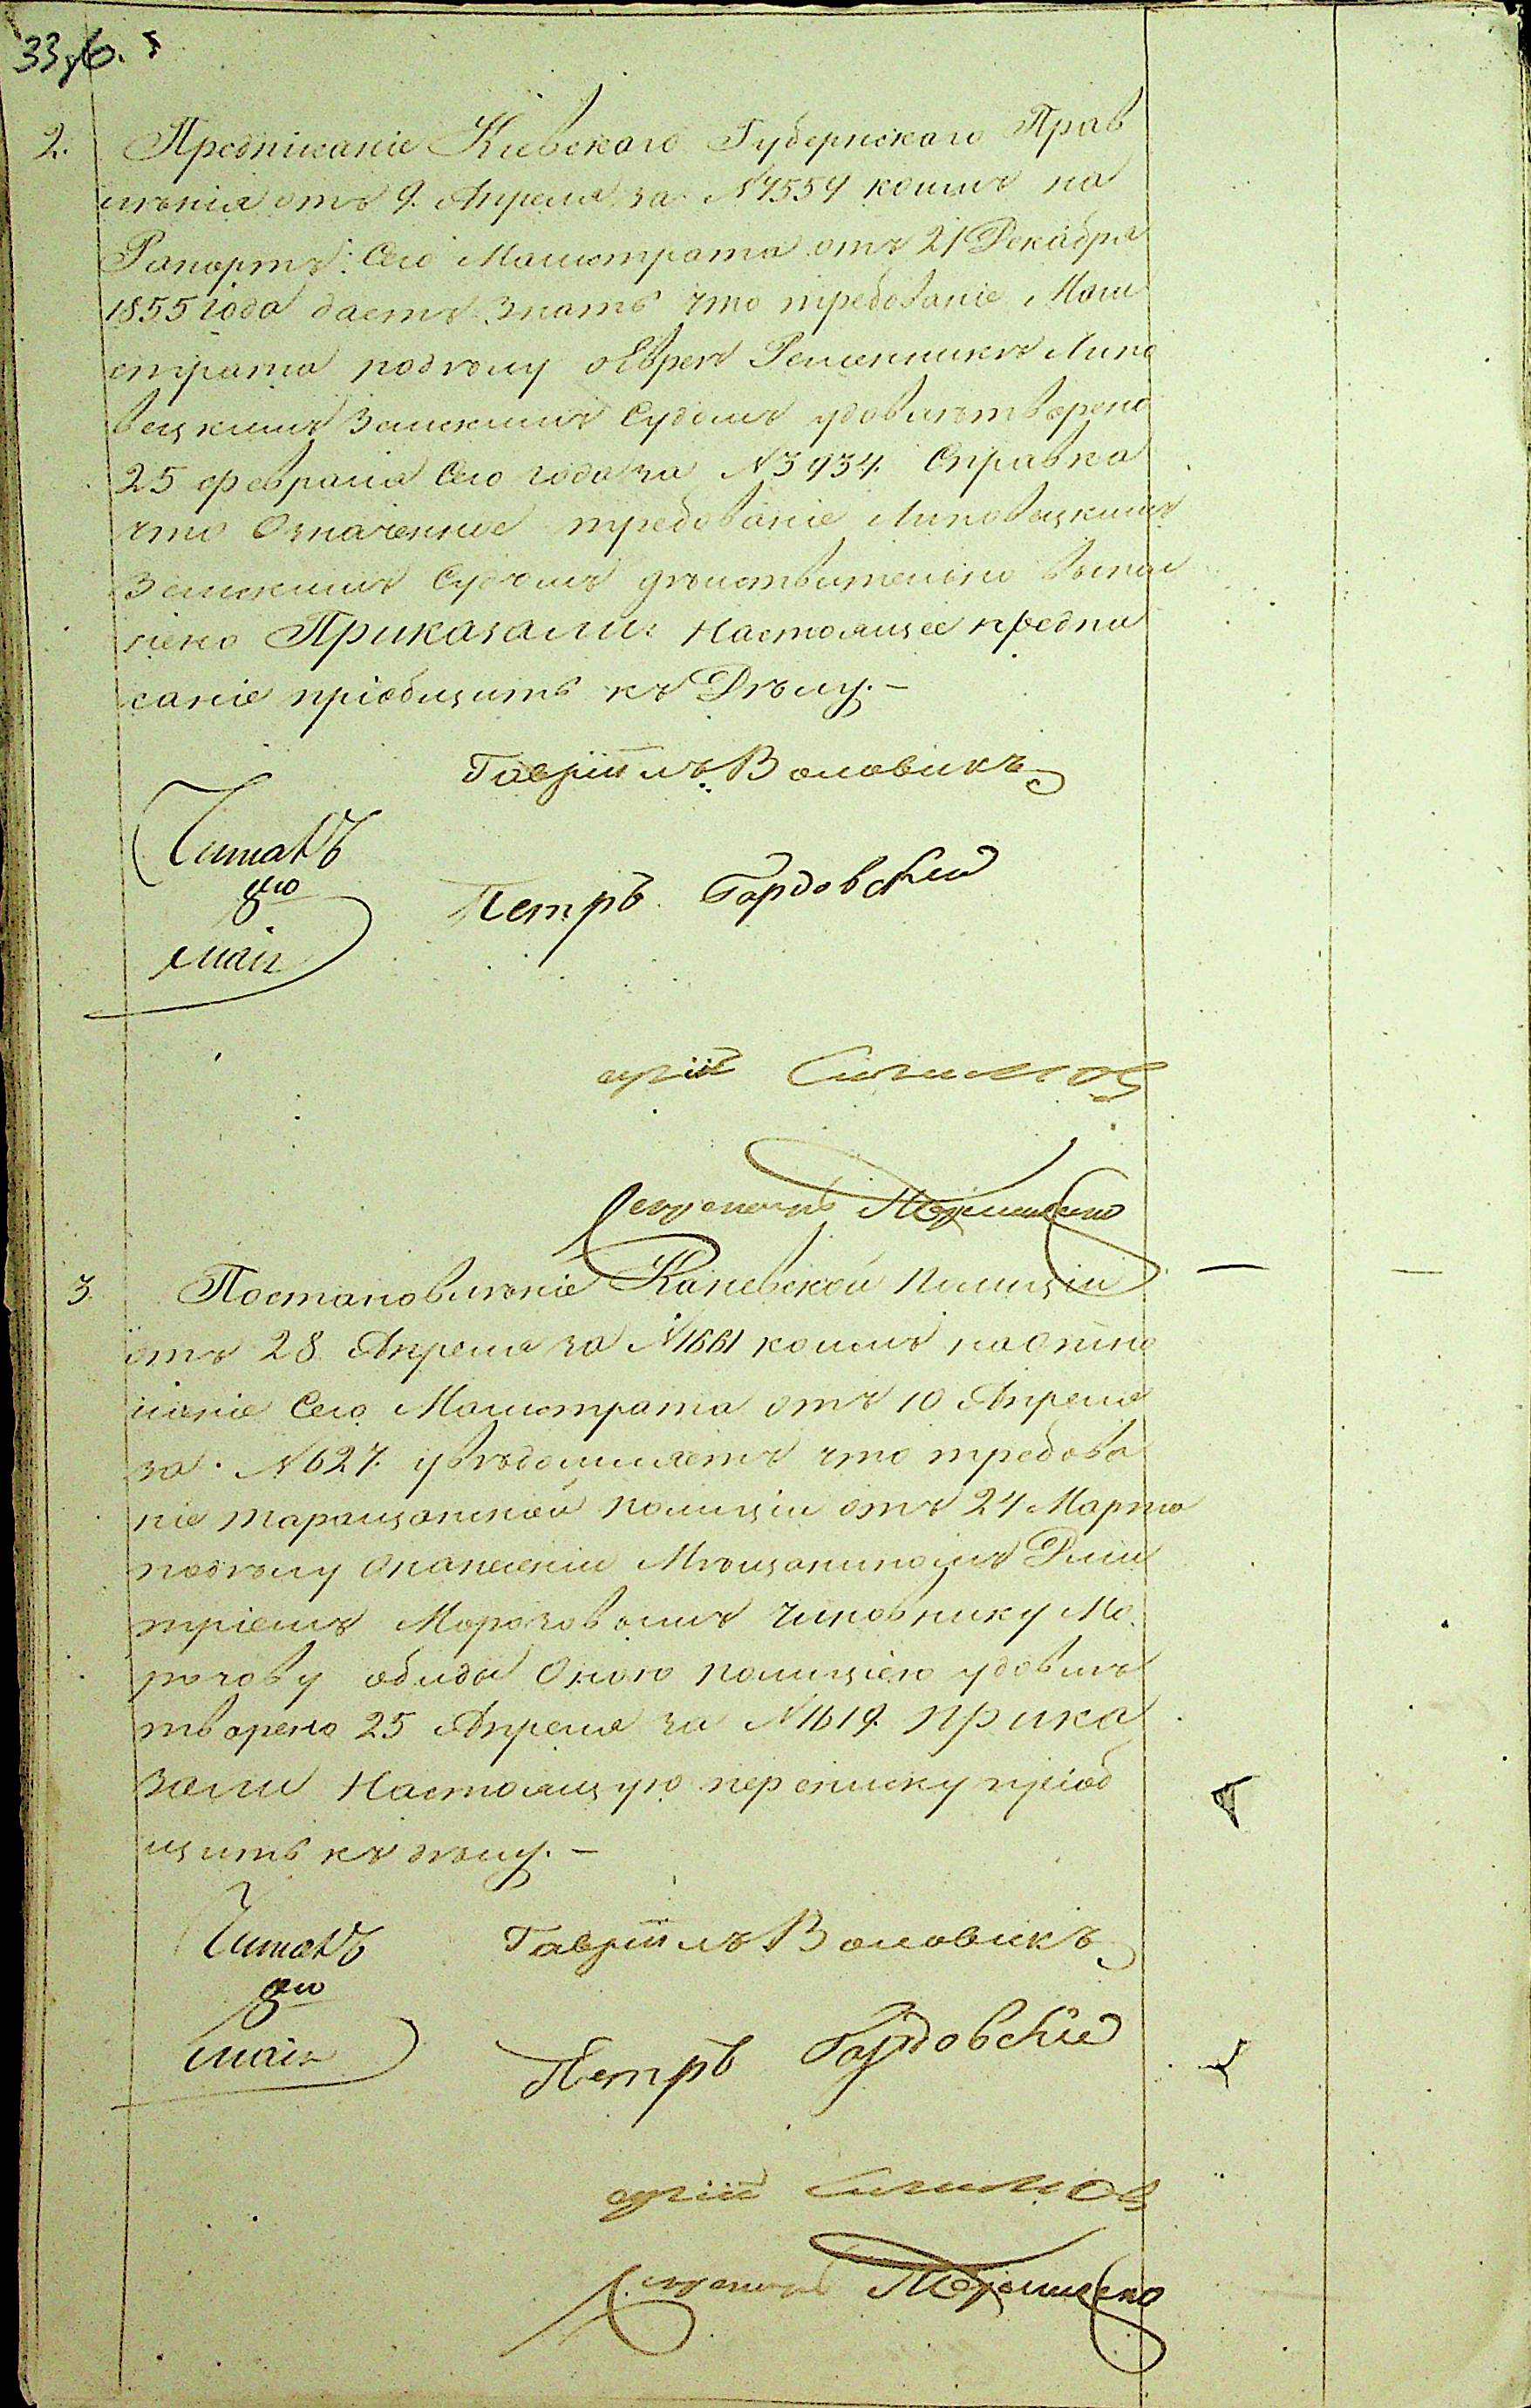 33 об.
2. Предписаніе Кіевского Губернского Прав
ленія отъ 9. Апреля за №7554 коимъ на
Рапортъ Сего Магистрата отъ 21 Декабря
1855 года даетъ знать что требованіе Маги
страта поделу о Еврее Липо
вецкимъ Земскимъ Судомъ удовлетворено
25 февраля Сего года за №3934. Справка
что Означенное требованіе Липовецкимъ
Земскимъ Судомъ действительно выпол
нено Приказали: Настоящее предпи
саніе пріобщить къ Делу. –
Гавріилъ Воловикъ
Читалъ
8го
мая
Петръ Гордовскій
3. Постановленіе Каневской Полиціи
отъ 28 Апреля за №1661 коимъ наотно
шеніе Сего Магистрата отъ 10 Апреля
за №627. уведомляетъ что требова
ніе таращанской полиціи отъ 24 Марта
поделу Онанесеніи Мещаниномъ Дми
тріемъ Морозовымъ Чиновнику Мо
розову обиды Оною полиціею удовле
творено 25 Апреля за №1619. прика
зали Настоящую переписку пріоб
щить къ делу. –
Читалъ
8го
мая
Гавріилъ Воловикъ
Петръ Гордовскій